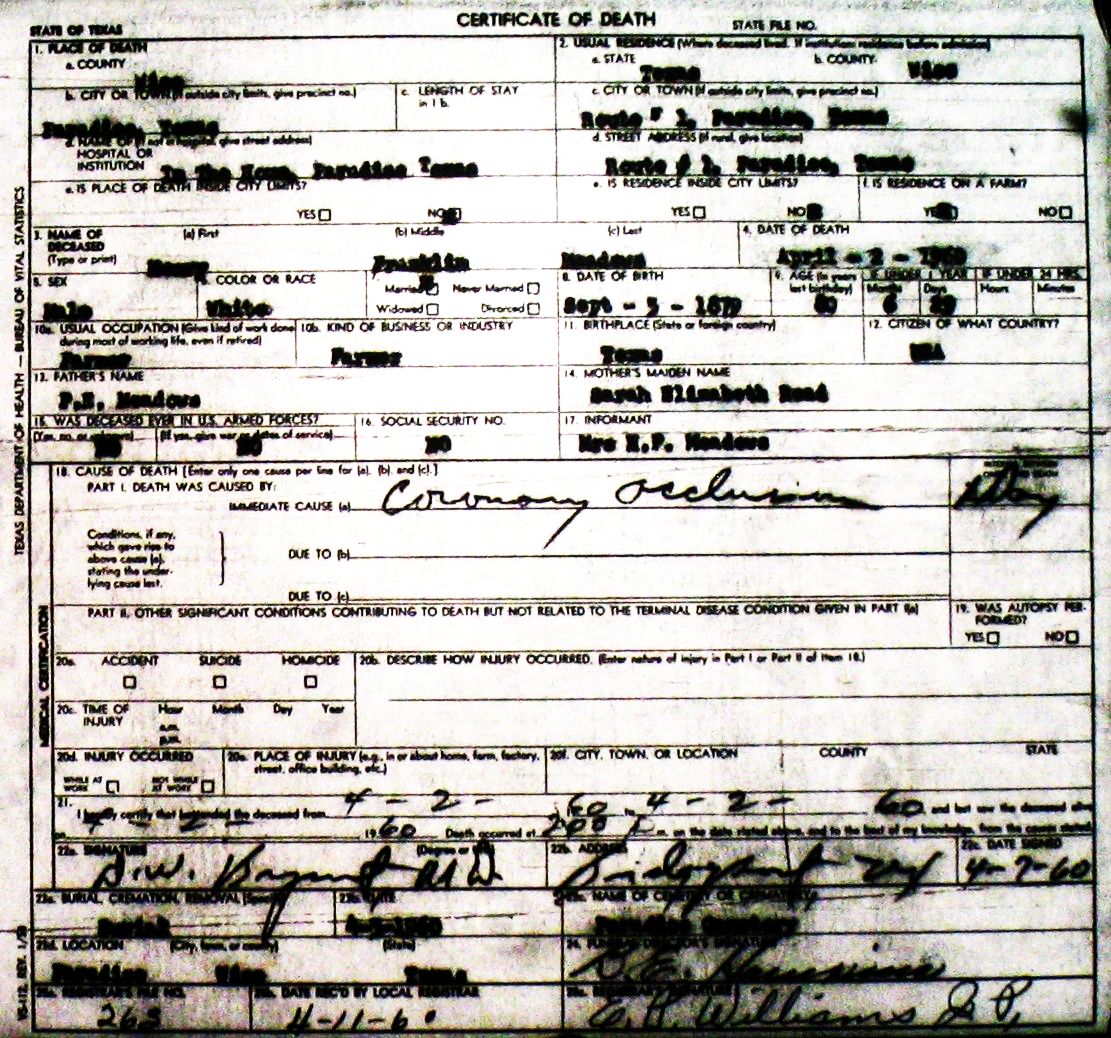 CERTIFICATE OF DEATH
STATE OF TEXAS
STATE FILE NO.
1. PLACE OF DEATH
a. COUNTY
Wise
2. USUAL RESIDENCE (Where deceased lived. If institution: residence before admission)
a. STATE
Texas
b. COUNTY
Wise
b. CITY OR TOWN (If outside city limits, give precinct no.)
Paradise, Texas
c. LENGTH OF STAY
in 1 b.
c. CITY OR TOWN (If outside city limits, give precinct no.)
Route # 1, Paradise, Texas
d. NAME OF (If not in hospital, give street address)
HOSPITAL OR
INSTITUTION
In The Home, Paradise Texas
d. STREET ADDRESS (If rural, give location)
Route # 1, Paradise, Texas
e. IS PLACE OF DEATH INSIDE CITY LIMITS?
YES NO
e. IS RESIDENCE INSIDE CITY LIMITS?
YES NO
f. IS RESIDENCE ON A FARM?
YES NO
3. NAME OF
DECEASED
(Type or print)
(a) First
(b) Middle
Franklin
(c) Last
Meadows
4. DATE OF DEATH
April - 2 - 1960
5. SEX
Male
6. COLOR OR RACE
White
Married Never Married
Widowed Divorced
8. DATE OF BIRTH
Sept - 3 - 1879
9. AGE (In years
last birthday)
80
IF UNDER 1 YEAR
Months
6
Days
29
IF UNDER 24 HRS.
Hours
Minutes
10a. USUAL OCCUPATION (Give kind of work done
during most of working life, even if retired)
Farmer
10b. KIND OF BUSINESS OR INDUSTRY
Farmer
11. BIRTHPLACE (State or foreign country)
Texas
12. CITIZEN OF WHAT COUNTRY?
USA
13. FATHER'S NAME
Meadows
14. MOTHER'S MAIDEN NAME
Sarah Elizabeth Read
15. WAS DECEASED EVER IN U.S. ARMED FORCES?
(Yes, no, or unknown)
NO
(If yes, give war or dates of service)
NO
16. SOCIAL SECURITY NO.
NO
17. INFORMANT
Mrs H.F. Meadows
18. CAUSE OF DEATH [Enter only one cause per line for (a), (b), and (c).]
PART I. DEATH WAS CAUSED BY:
IMMEDIATE CAUSE (a)
Coronary Occlusion
Day
Conditions, if any,
which gave rise to
above cause (a),
stating the under-
lying cause last.
DUE TO (b)
DUE TO (c)
PART II. OTHER SIGNIFICANT CONDITIONS CONTRIBUTING TO DEATH BUT NOT RELATED TO THE TERMINAL DISEASE CONDITION GIVEN IN PART I(a)
19. WAS AUTOPSY PER-
FORMED?
YES NO
20a. ACCIDENT SUICIDE HOMICIDE
20b. DESCRIBE HOW INJURY OCCURRED. (Enter nature of injury in Part I or Part II of Item 18.)
20c. TIME OF
INJURY
Hour Month Day Year
a.m.
p.m.
20d. INJURY OCCURRED
WHILE AT
WORK
NOT WHILE
AT WORK
20e. PLACE OF INJURY (e.g., in or about home, farm, factory,
street, office building, etc.)
20f. CITY, TOWN, OR LOCATION COUNTY STATE
21.
I hereby certify that I attended the deceased from 4 - 2 - 60 to 4 - 2 - 60 and last saw the deceased alive
on 4 - 2 - 1960 Death occurred at 200 m. on the date stated above, and to the best of my knowledge, from the causes stated.
22a. SIGNATURE (Degree or title)
MD
22b. ADDRESS
Bridgeport
22c. DATE SIGNED
4-7-60
23a. BURIAL, CREMATION, REMOVAL (Specify)
Burial
23b. DATE
23c. NAME OF CEMETERY OR CREMATORY
Paradise Cemetery
23d. LOCATION (City, town, or county) (State)
Paradise Wise Texas
24. FUNERAL DIRECTOR'S SIGNATURE
25a. REGISTRAR'S FILE NO.
263
25b. DATE REC'D BY LOCAL REGISTRAR
4-11-60
25c. REGISTRAR'S SIGNATURE
E.R. Williams J P.
TEXAS DEPARTMENT OF HEALTH — BUREAU OF VITAL STATISTICS
MEDICAL CERTIFICATION
VS-112, REV. 1/58